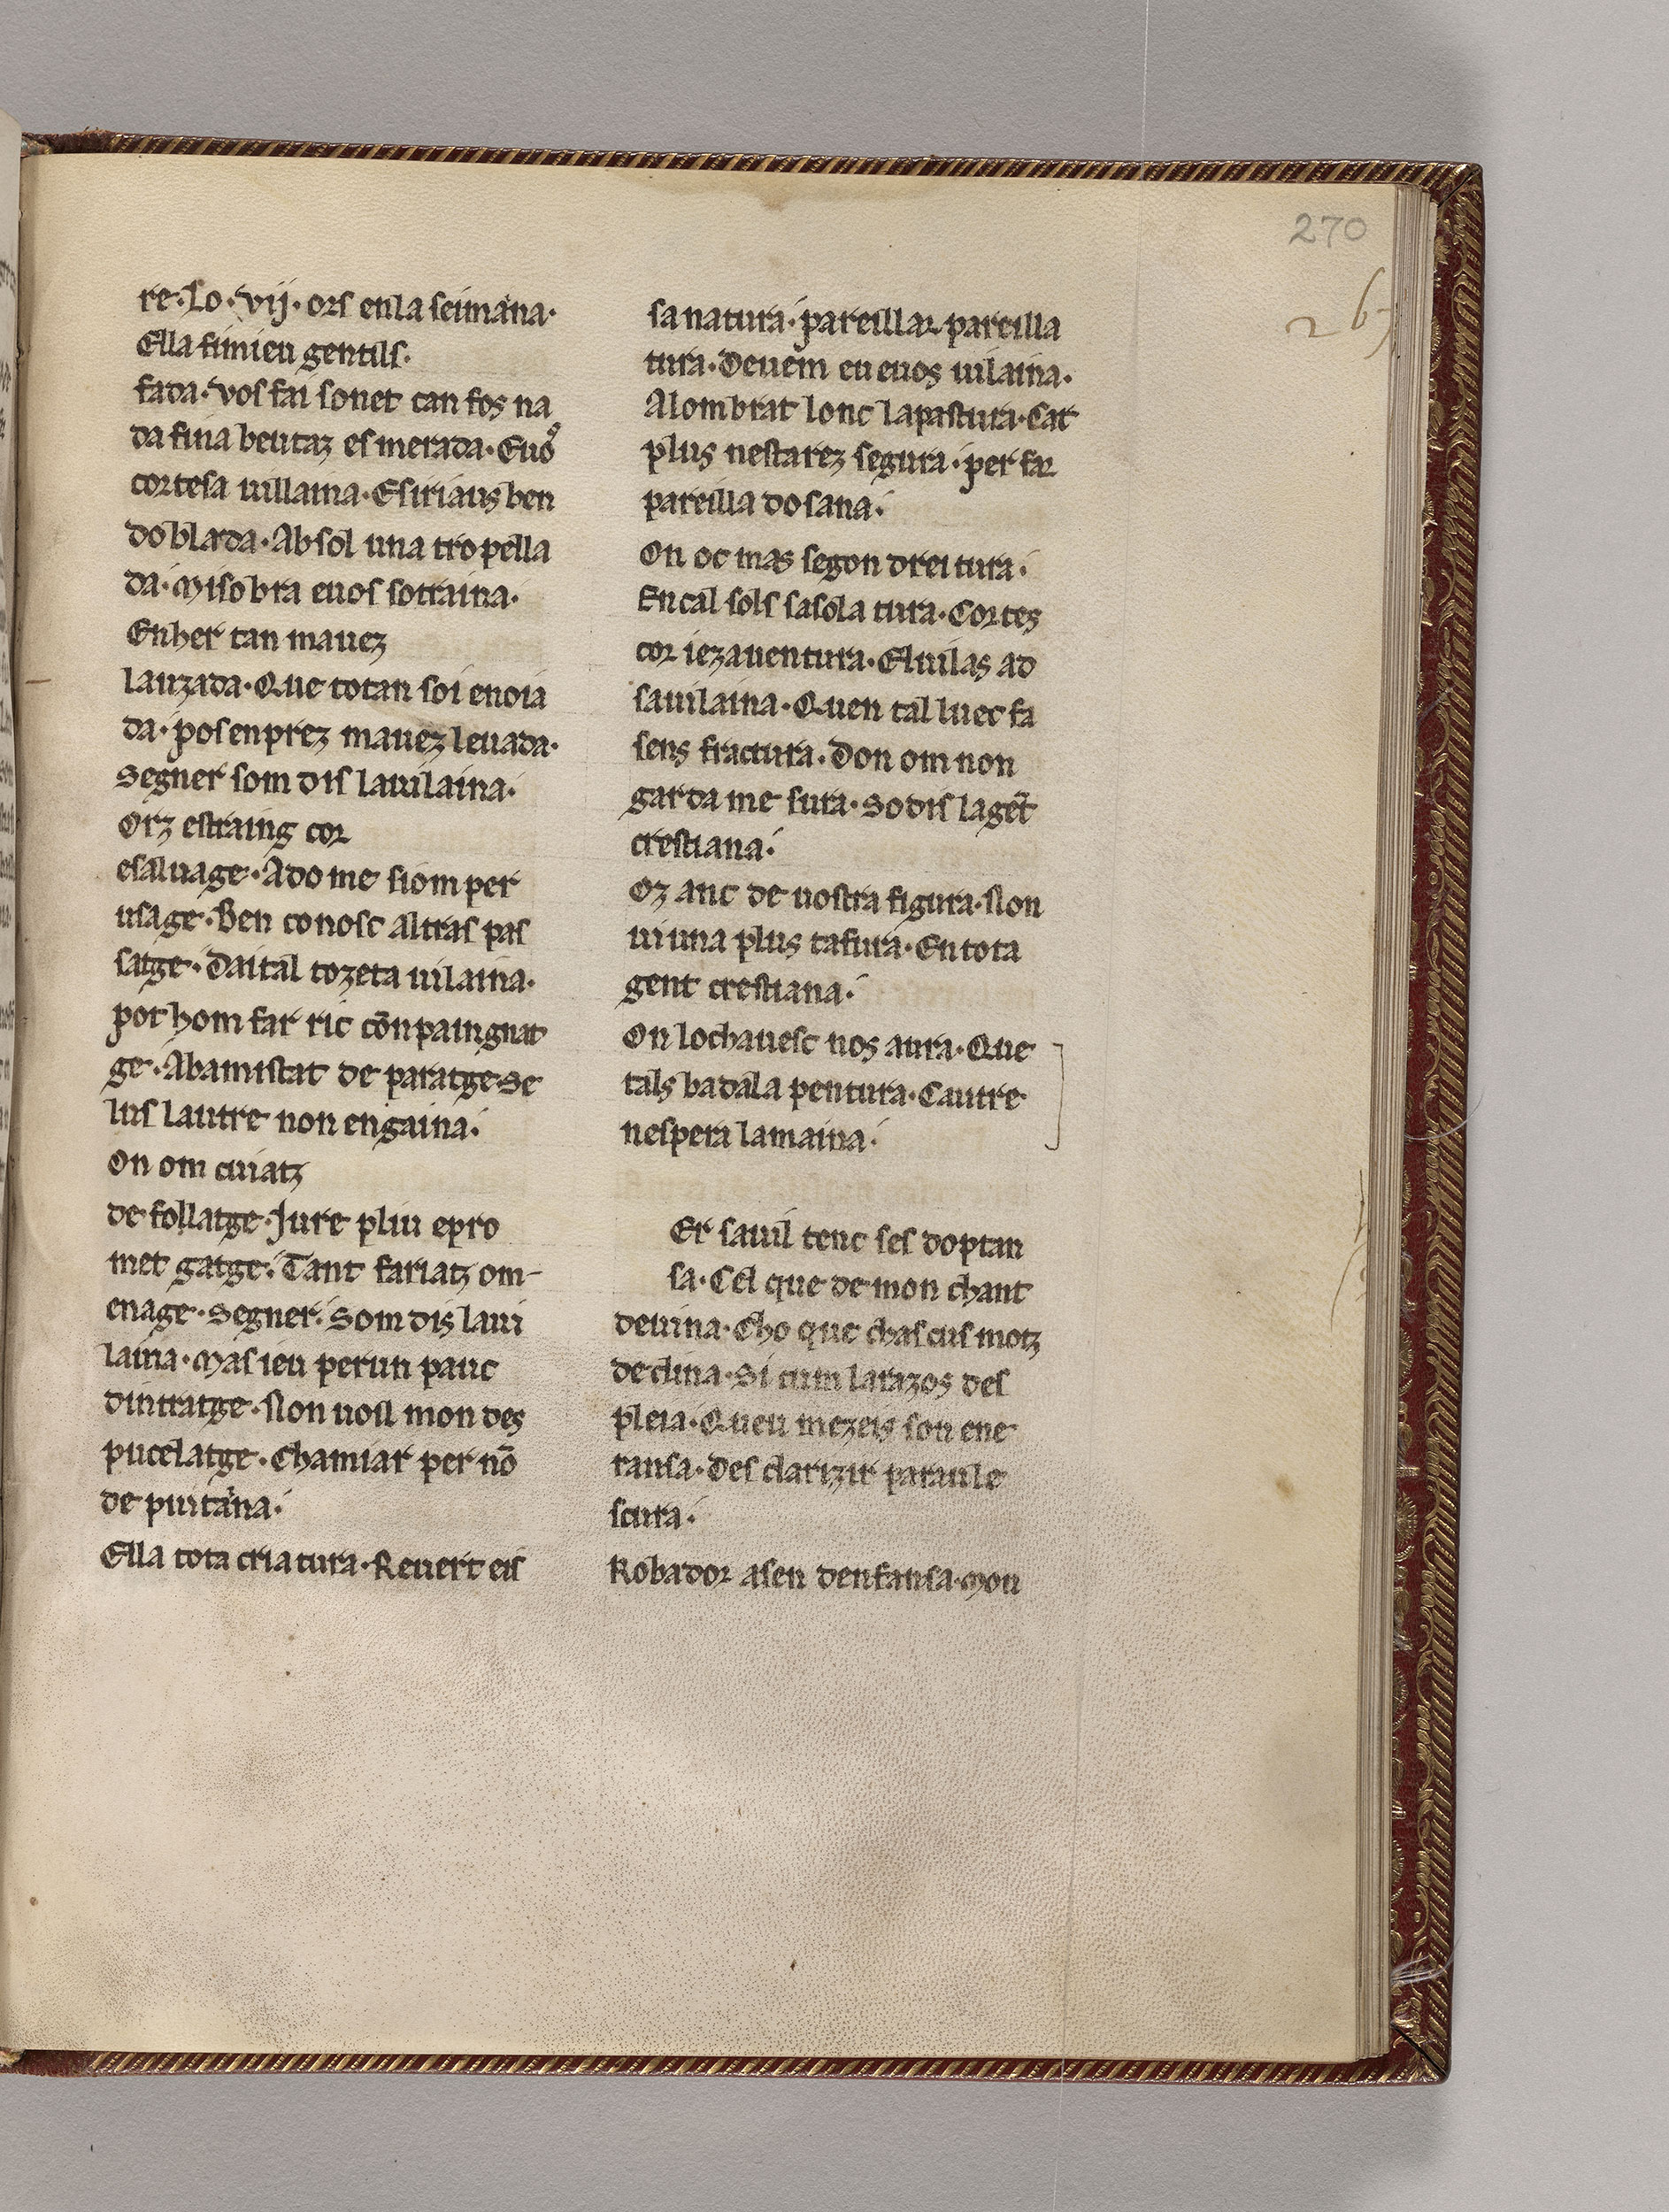 270
267
re·Lo·vij·ors enla seimana·
Ella fimieu gentils·
fada·Vos fai sonet can fos na
da fina beutaz esmerada·Euos
cortesa uillaina·Esiriaus ben
doblada·Absol una tropella
da·Misobra euos sotraina·
Enher tan mauez
lauzada·Que totan soi enoia
da·posenprez mauez leuada·
Segner som dis lauilaina·
Orz estraing cor
esaluage·Adome siomper
usage·Ben conosc altras pas
satge·Daital tozeta uilaina·
pot hom far ric cōnpaingnat
ge·Abamistat de paratge·Se
lus lautre non engaina·
On om cuiatz
de follatge·Jure pliu epro
met gatge·Tant fariatz om-
enage·Segner·Som dis laui
laina·Mas ieu perun pauc
dintratge·Non uoil mon des
pucelatge·Chamiar per nō
de puitana·
Ella tota criatura·Reuert eis
sa natura·pareillar pareilla
tura·Deuem eu euos uilaina·
Alombrat lonc lapastura·Car
plus nestarez segura·per far
pareilla dosana·
On oc mas segon dreitura·
Encal sols sasola tura·Cortes
cor iezauentura·Eluilas ad
sauilaina·Quen tal luec fa
sens fractura·Don om non
garda me sura·So dis lagēt
crestiana·
Oz anc de uostra figura·Non
ui una plus tafura·En tota
gent crestiana·
On lochauesc nos aura·Que
tals badala pentura·Cautre
nespera lamaina·
Er sauil tenc ses doptan
sa·Cel que de mon chant
deuina·Cho que chascus motz
declina·Si cum larazos des
pleia·Queu mezeis son ene
ransa·Des clarizir paraule
scura·
Robador asen denfansa·Mou